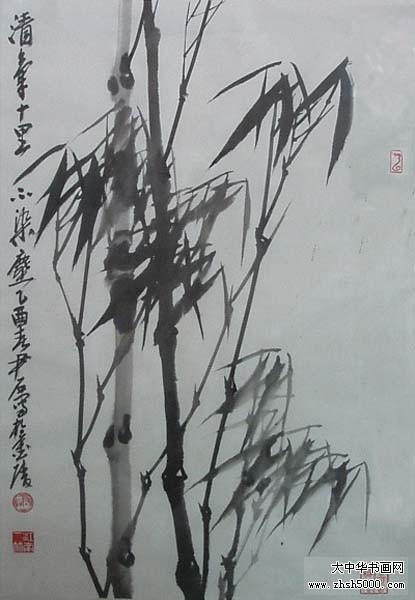 清氣十里不染塵乙酉春尹石寫於金陵
大中华书画网
www.zhsh5000.com